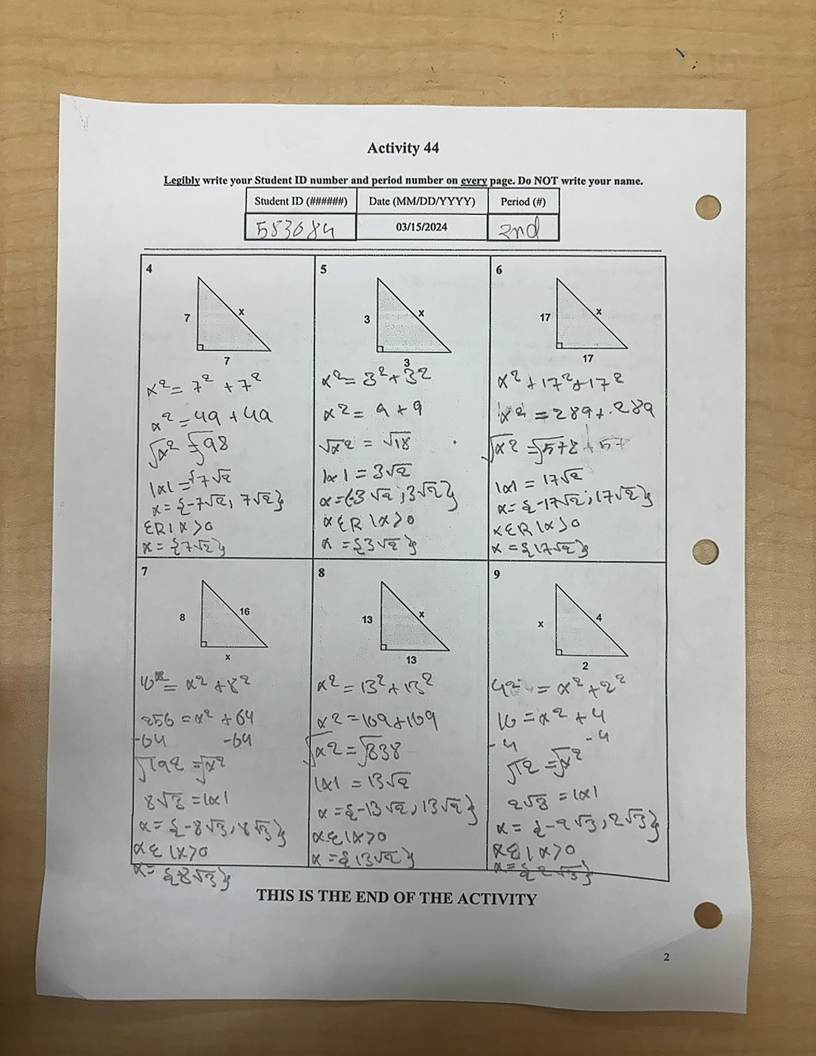 Activity 44
Legibly write your Student ID number and period number on every page. Do NOT write your name.
Student ID (######) Date (MM/DD/YYYY) Period (#)
553084 03/15/2024 2nd
4
7
x
7
x² = 7² + 7²
x² = 49 + 49
√x² = √98
|x| = 7√2
x = {-7√2, 7√2}
ɛR | x > 0
x = {7√2}
5
3
x
3
x² = 3² + 3²
x² = 9 + 9
√x² = √18
|x| = 3√2
x = {-3√2, 3√2}
xɛR | x > 0
x = {3√2}
6
17
x
17
x² + 17² + 17²
x² = 289 + 289
√x² = √578
|x| = 17√2
x = {-17√2, 17√2}
xɛR | x > 0
x = {17√2}
7
8
16
x
= x² + 8²
256 = x² + 64
-64 -64
√192 = √x²
8√3 = |x|
x = {-8√3, 8√3}
xɛ | x > 0
x = {8√3}
8
13
x
13
x² = 13² + 13²
x² = 169 + 169
√x² = √338
|x| = 13√2
x = {-13√2, 13√2}
xɛ | x > 0
x = {13√2}
9
x
4
2
4² = x² + 2²
16 = x² + 4
-4 -4
√12 = √x²
2√3 = |x|
x = {-2√3, 2√3}
xɛ | x > 0
x = {2√3}
THIS IS THE END OF THE ACTIVITY
2